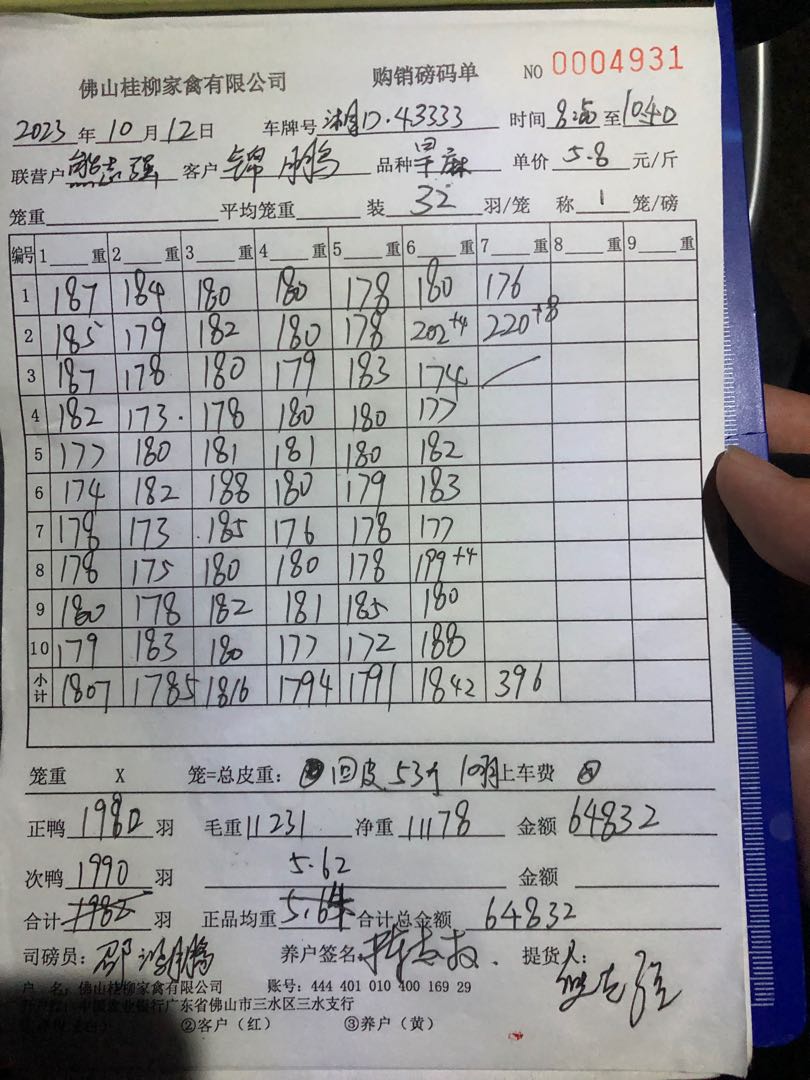 佛山桂柳家禽有限公司 购销磅码单 NO 0004931
2023 年 10 月 12 日 车牌号 湘D·43333 时间 至 1040
联营户 熊志强 客户 锦鹏 品种 麻 单价 5.8 元/斤
笼重 平均笼重 装 32 羽/笼 称 1 笼/磅
编号 1 重 2 重 3 重 4 重 5 重 6 重 7 重 8 重 9 重
1 187 184 180 180 178 180 176
2 185 179 182 180 178 202+4 220+8
3 187 178 180 179 183 174
4 182 173 178 180 180 177
5 177 180 181 181 180 182
6 174 182 188 180 179 183
7 178 173 185 176 178 177
8 178 175 180 180 178 199+4
9 180 178 182 181 185 180
10 179 183 180 177 172 188
小计 1807 1785 1816 1794 1791 1842 396
笼重 X 笼=总皮重: 回皮 53斤 上车费
正鸭 1980 羽 毛重 11231 净重 11178 金额 64832
次鸭 1990 羽 5.62 金额
合计 1982 羽 正品均重 5.64 合计总金额 64832
司磅员: 邵鹏 养户签名 提货人:
户 名: 佛山桂柳家禽有限公司 账号: 444 401 010 400 169 29
中国农业银行广东省佛山市三水区三水支行
②客户(红) ③养户(黄)